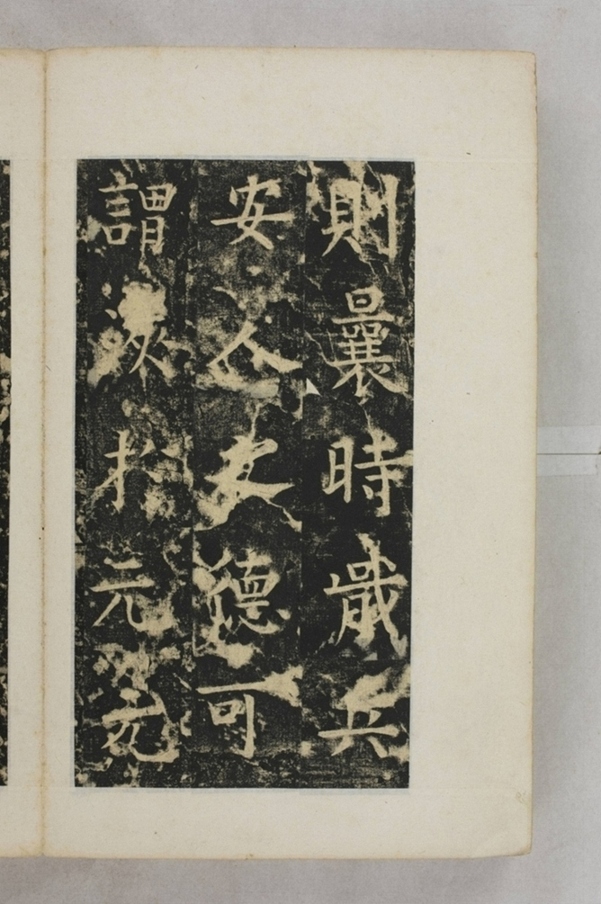 則曩時戢兵
安人文德可
謂於元元